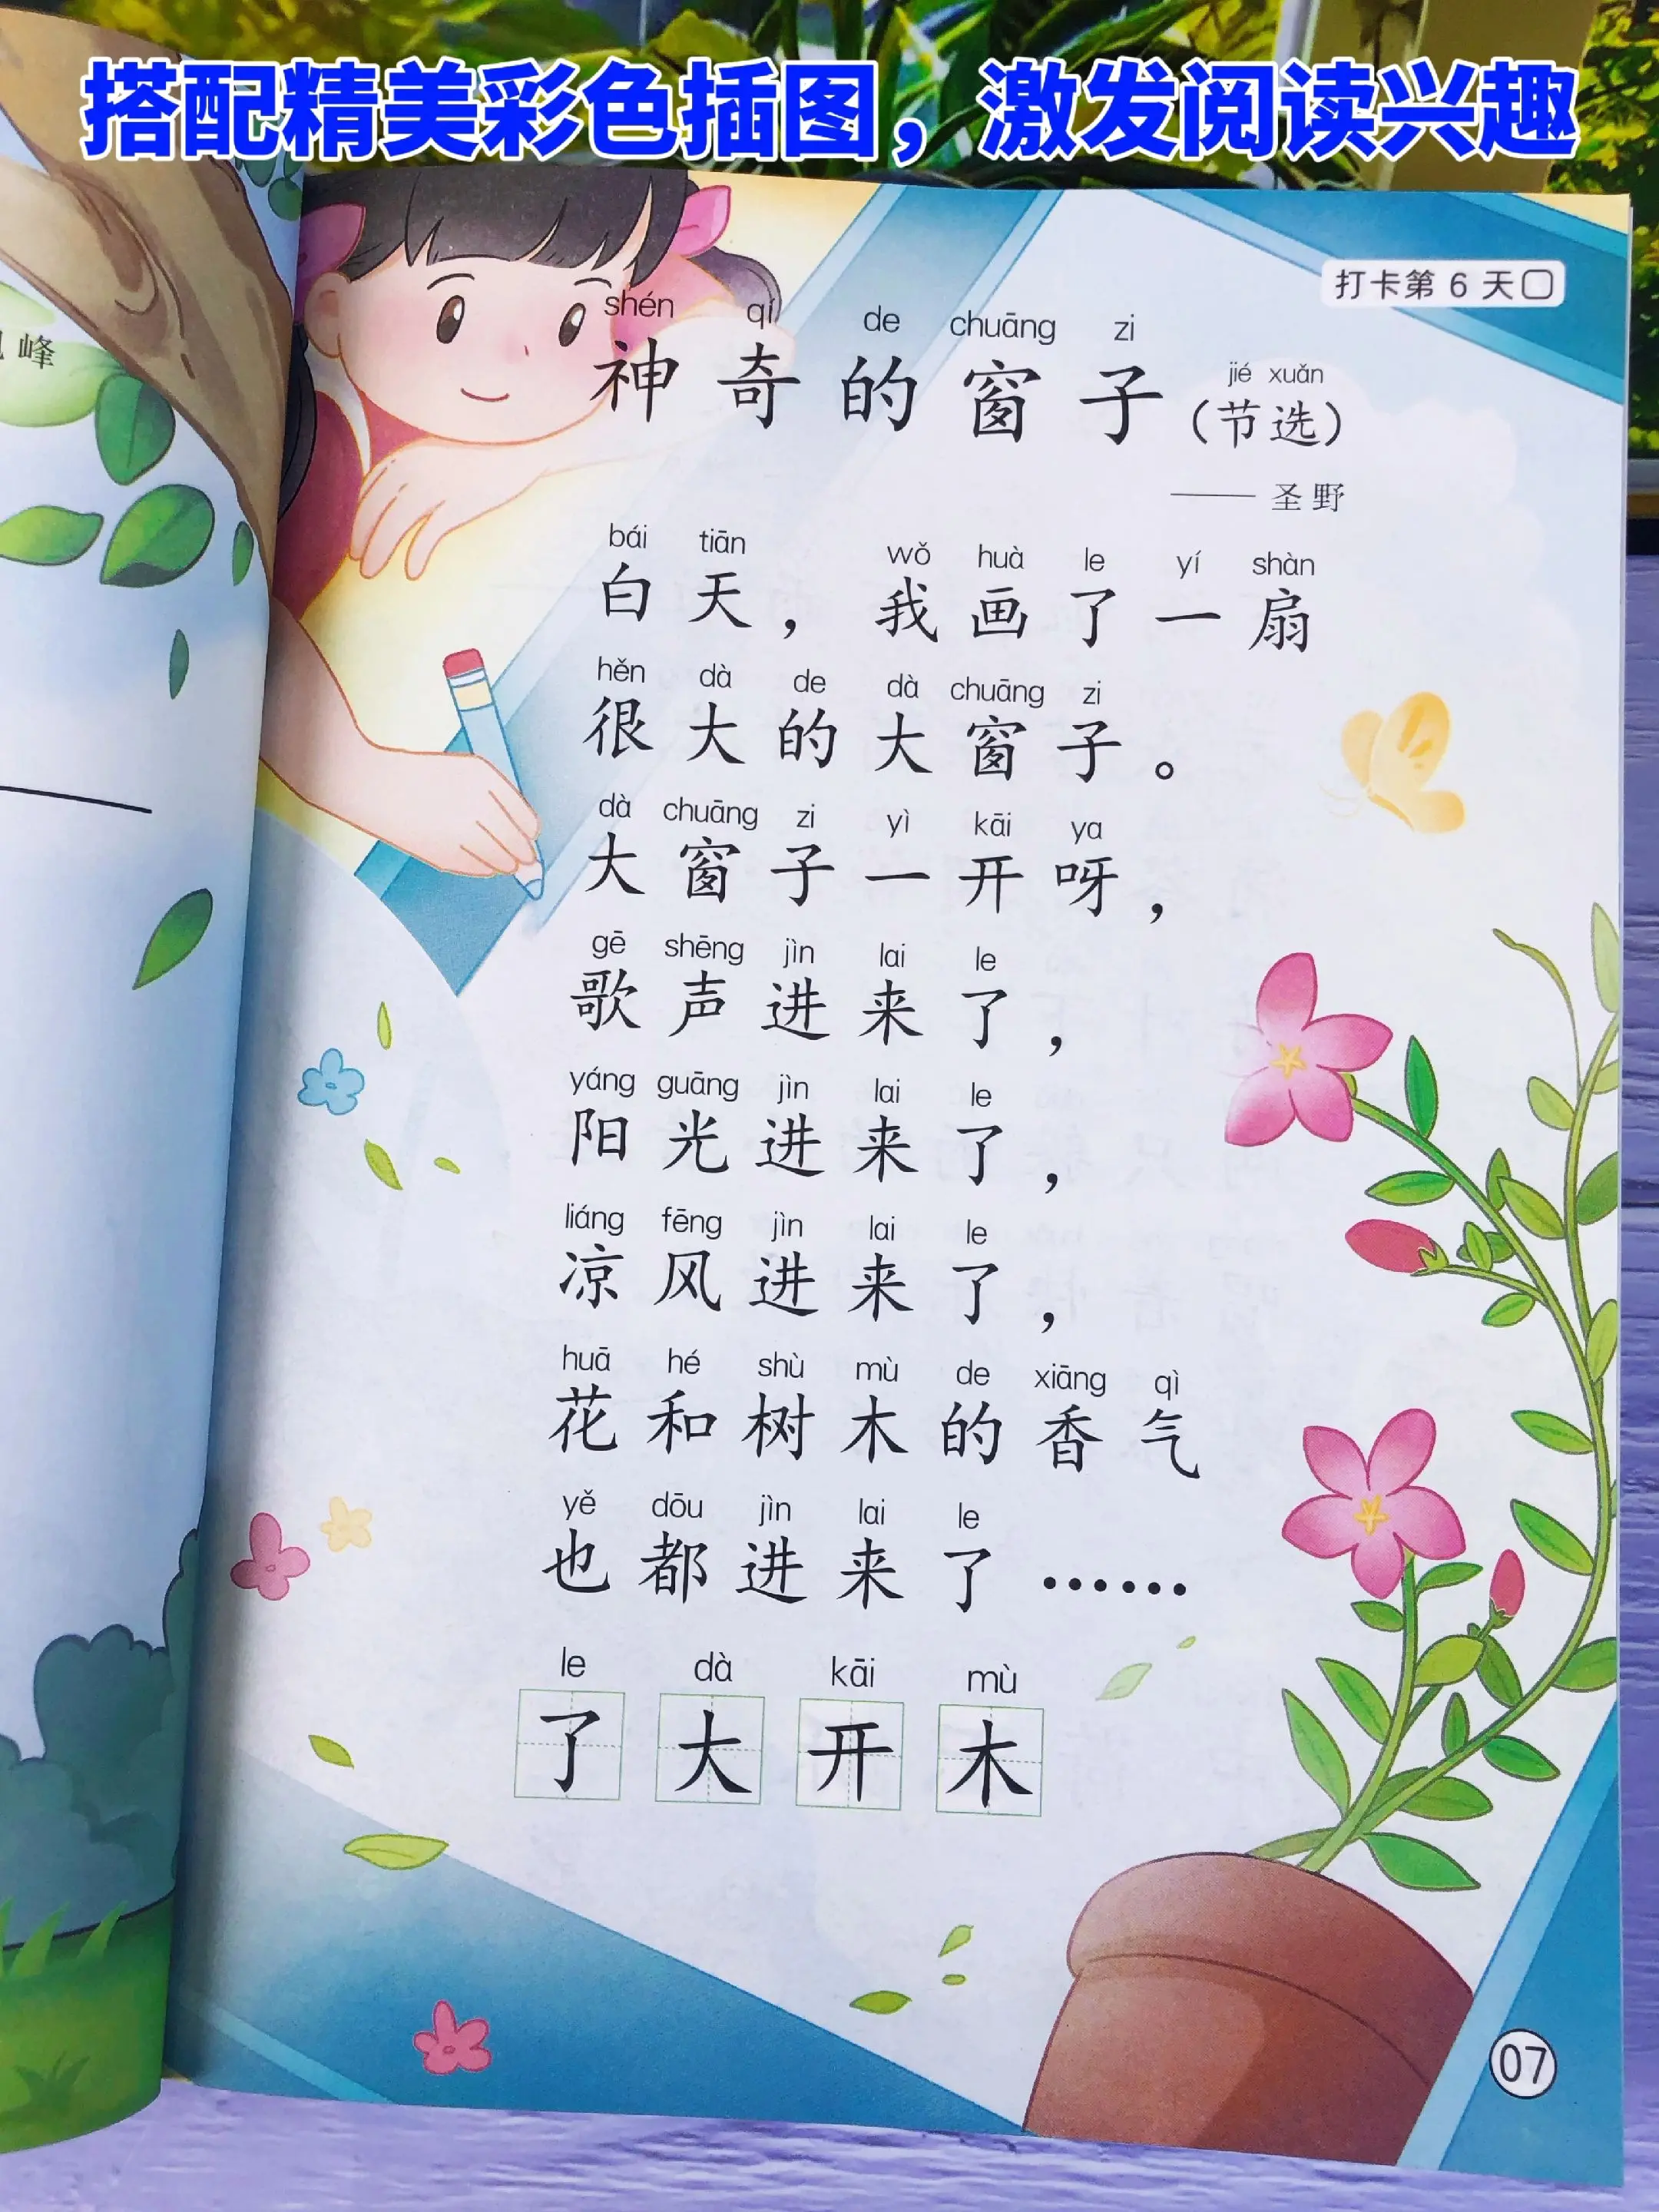 搭配精美彩色插图，激发阅读兴趣
峰
打卡第 6 天
shén qí de chuāng zi jié xuǎn
神奇的窗子（节选）
—— 圣野
bái tiān wǒ huà le yí shàn
白天，我画了一扇
hěn dà de dà chuāng zi
很大的大窗子。
dà chuāng zi yì kāi ya
大窗子一开呀，
gē shēng jìn lai le
歌声进来了，
yáng guāng jìn lai le
阳光进来了，
liáng fēng jìn lai le
凉风进来了，
huā hé shù mù de xiāng qì
花和树木的香气
yě dōu jìn lai le
也都进来了……
le dà kāi mù
了大开木
07